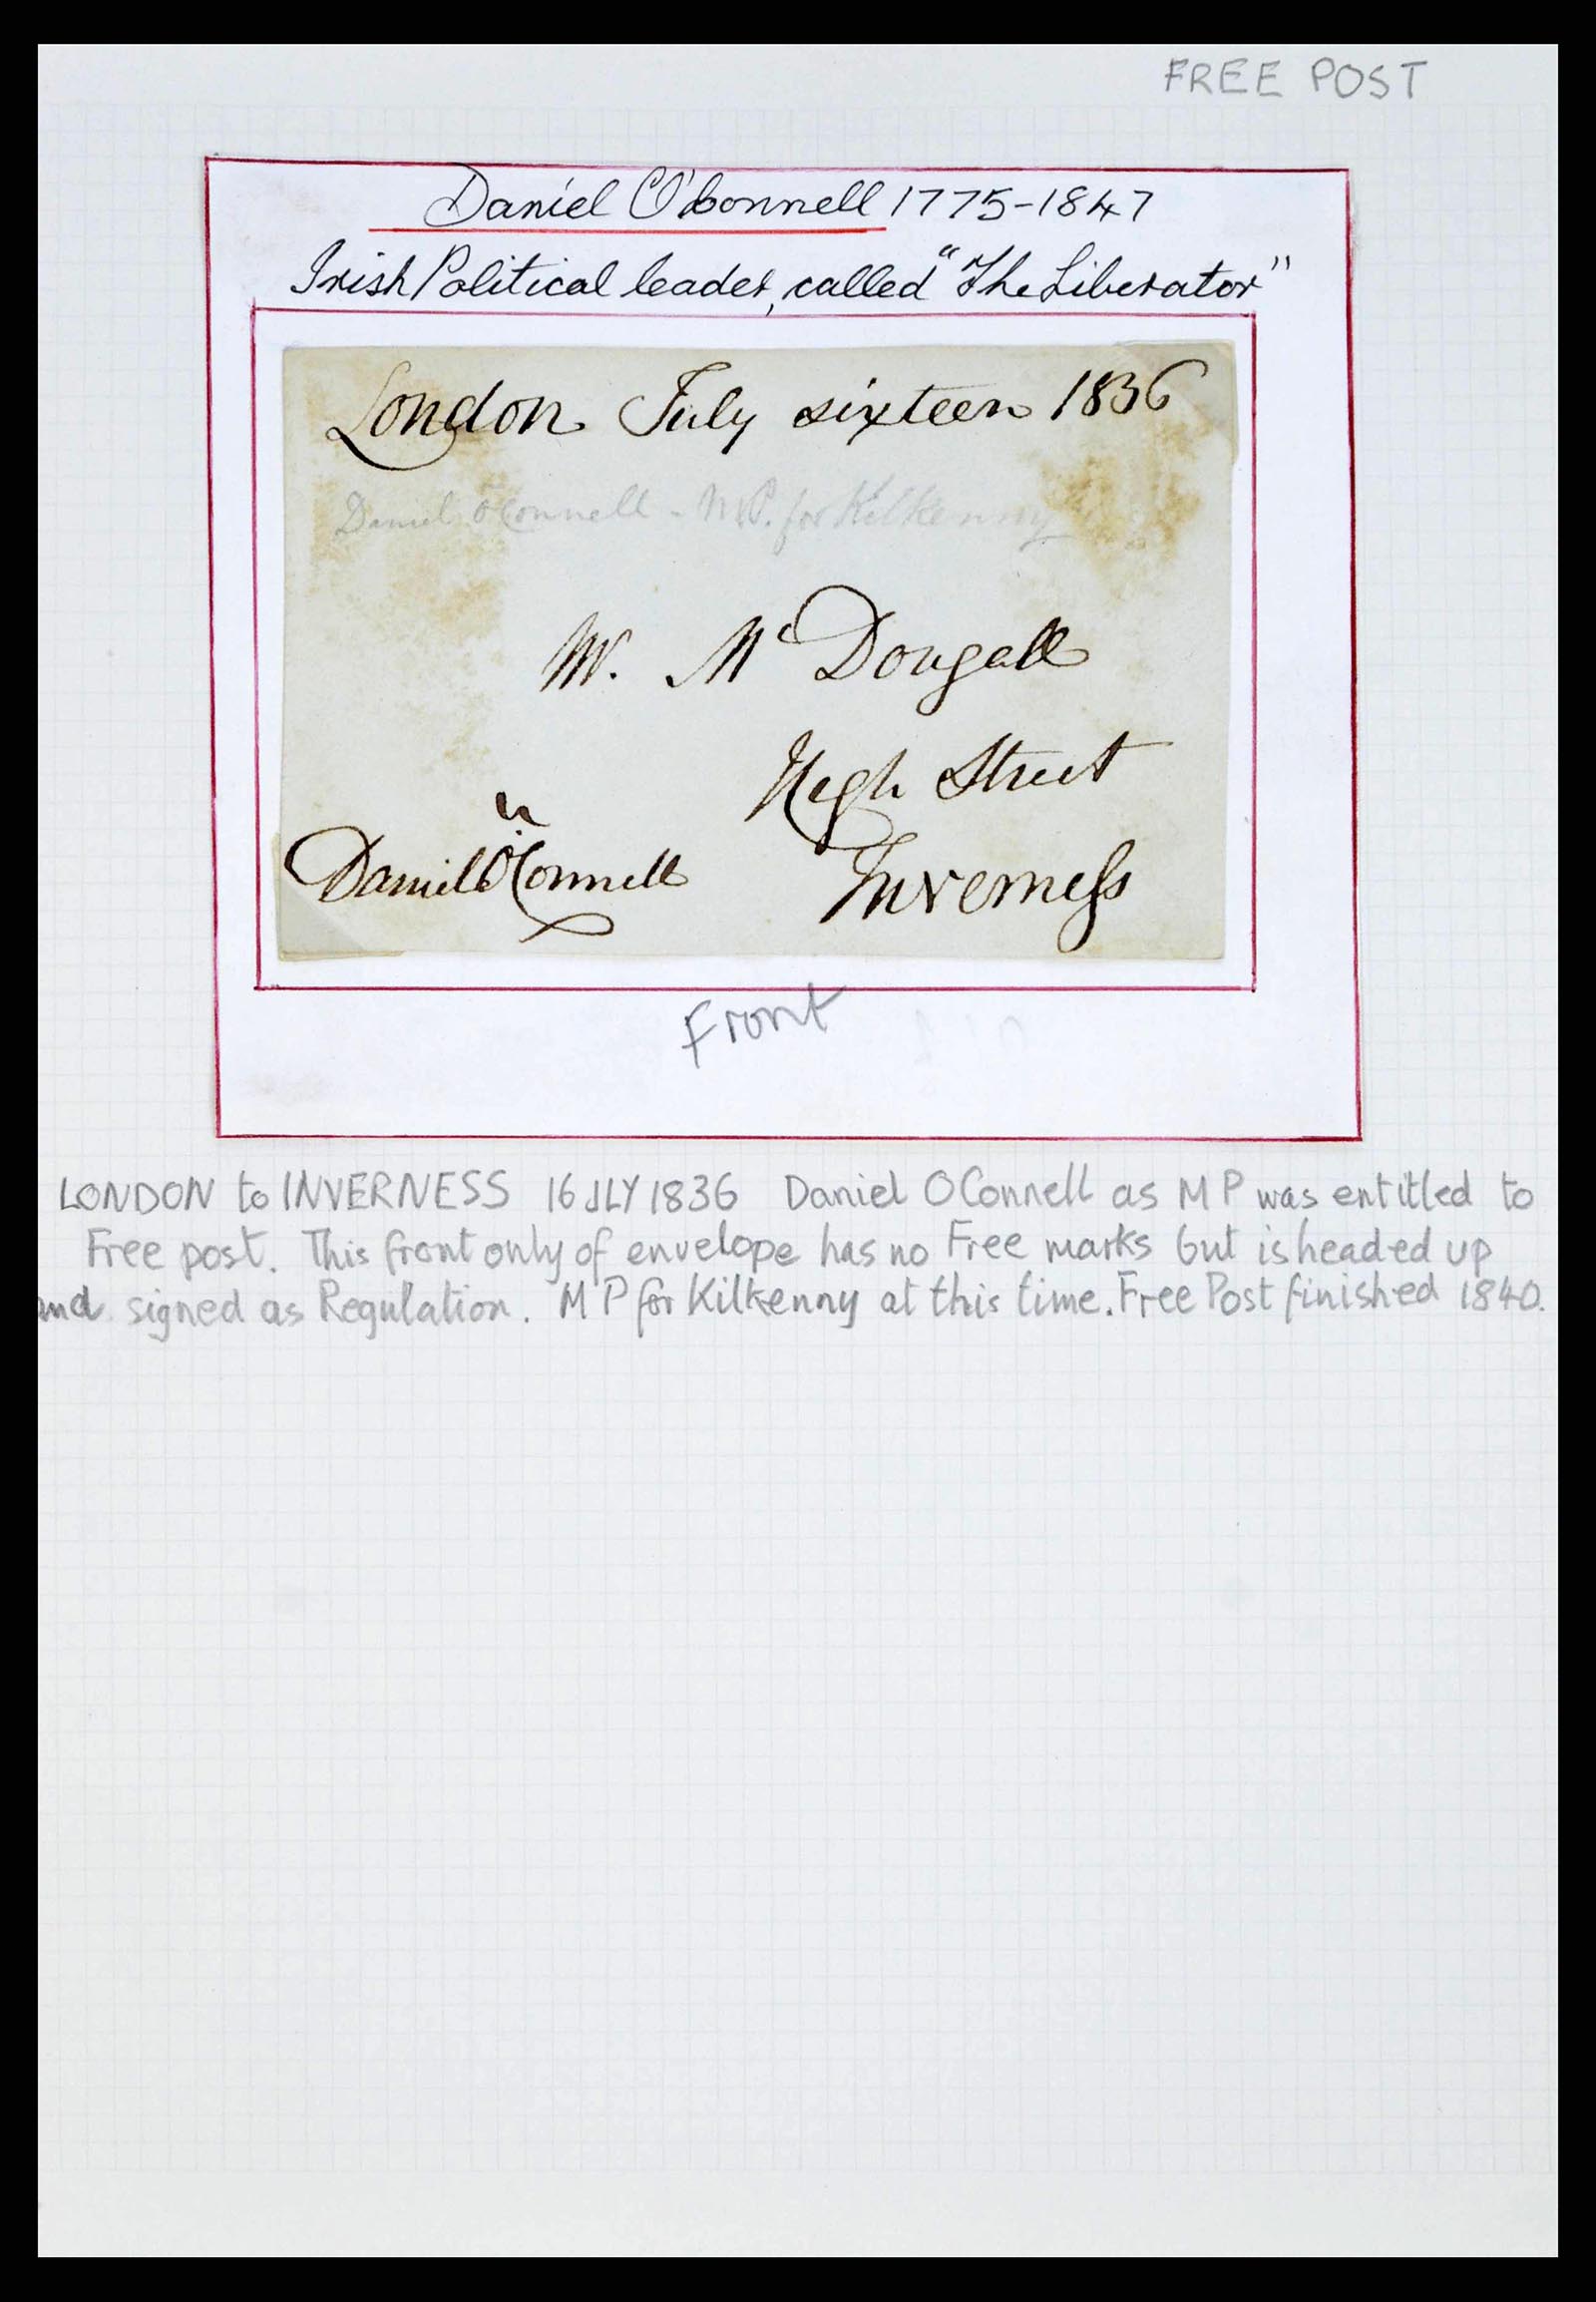 FREE POST
Daniel O'Connell 1775-1847
Irish Political leader, called "The Liberator"
London July sixteen 1836
Daniel O'Connell - M.P. for Kilkenny
Mr. McDougall
High Street
Daniel O'Connell
Inverness
Front
LONDON to INVERNESS 16 JLY 1836 Daniel OConnell as MP was entitled to
Free post. This front only of envelope has no Free marks but is headed up
and signed as Regulation. MP for Kilkenny at this time. Free Post finished 1840.